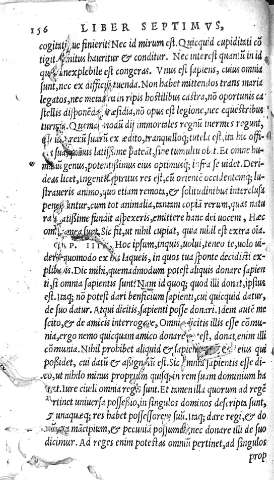 156 LIBER SEPTIMVS,
cogitatque finierit: Nec id mirum est. Quicquid cupiditati cō
tigit, penitus hauritur & conditur. Nec interest quantū in id
quod inexplebile est congeras. Vnus est sapiens, cuius omnia
sunt, nec ex difficili tuenda. Non habet mittendos trans maria
legatos, nec metata in ripis hostilibus castra, nō oportunis ca
stellis disponenda præsidia, nō opus est legione, nec equestribus
turmis. Quemadmodū dij immortales regnū inermes regunt,
& illis rerū suarū ex ædito, tranquilloque tutela est, ita hic offi
quamuis latissime pateāt, sine tumultu obit. Et omne hu
manū genus, potentissimus eius optimusque, infra se uidet. Deri
deas licet, ingentis spiritus res est, cū orientē occidentemque lu
straueris animo, quo etiam remota, & solitudinibus interclusa
penetrantur, cum tot animalia, tantam copiā rerum, quas natu
ra beatissime fundit aspexeris, emittere hanc dei uocem, Hæc
omnia mea sunt. Sic fit, ut nihil cupiat, quia nihil est extra oīa.
CAP. IIII. Hoc ipsum, inquis, uolui, teneo te, uolo ui
dere quomodo ex his laqueis, in quos tua sponte decidisti ex
plicaris. Dic mihi, quemadmodum potest aliquis donare sapien
ti, si omnia sapientis sunt? Nam id quoque, quod illi donat, ipsius
est. Itaque nō potest dari beneficium sapienti, cui quicquid datur,
de suo datur. Atqui dicitis sapienti posse donari. Idem autē me
scito, & de amicis interrogare. Omnia dicitis illi esse cōmu
nia, ergo nemo quicquam amico donare potest, donat enim illi
cōmunia. Nihil prohibet aliquid & sapientis & eius qui
possidet, cui datū & assignatū est. Sic omnia sapientis esse di
co, ut nihilo minus propriū quisque in rem suam dominiū ha
beat. Iure ciuili omnia regis sunt. Et tamen illa quorum ad regē
pertinet uniuersa possessio, in singulos dominos descripta sunt,
& unaquæque res habet possessorem suū. Itaque dare regi, & do
mum & mācipium, & pecuniā possumus, nec donare illi de suo
dicimur. Ad reges enim potestas omniū pertinet, ad singulos
prop